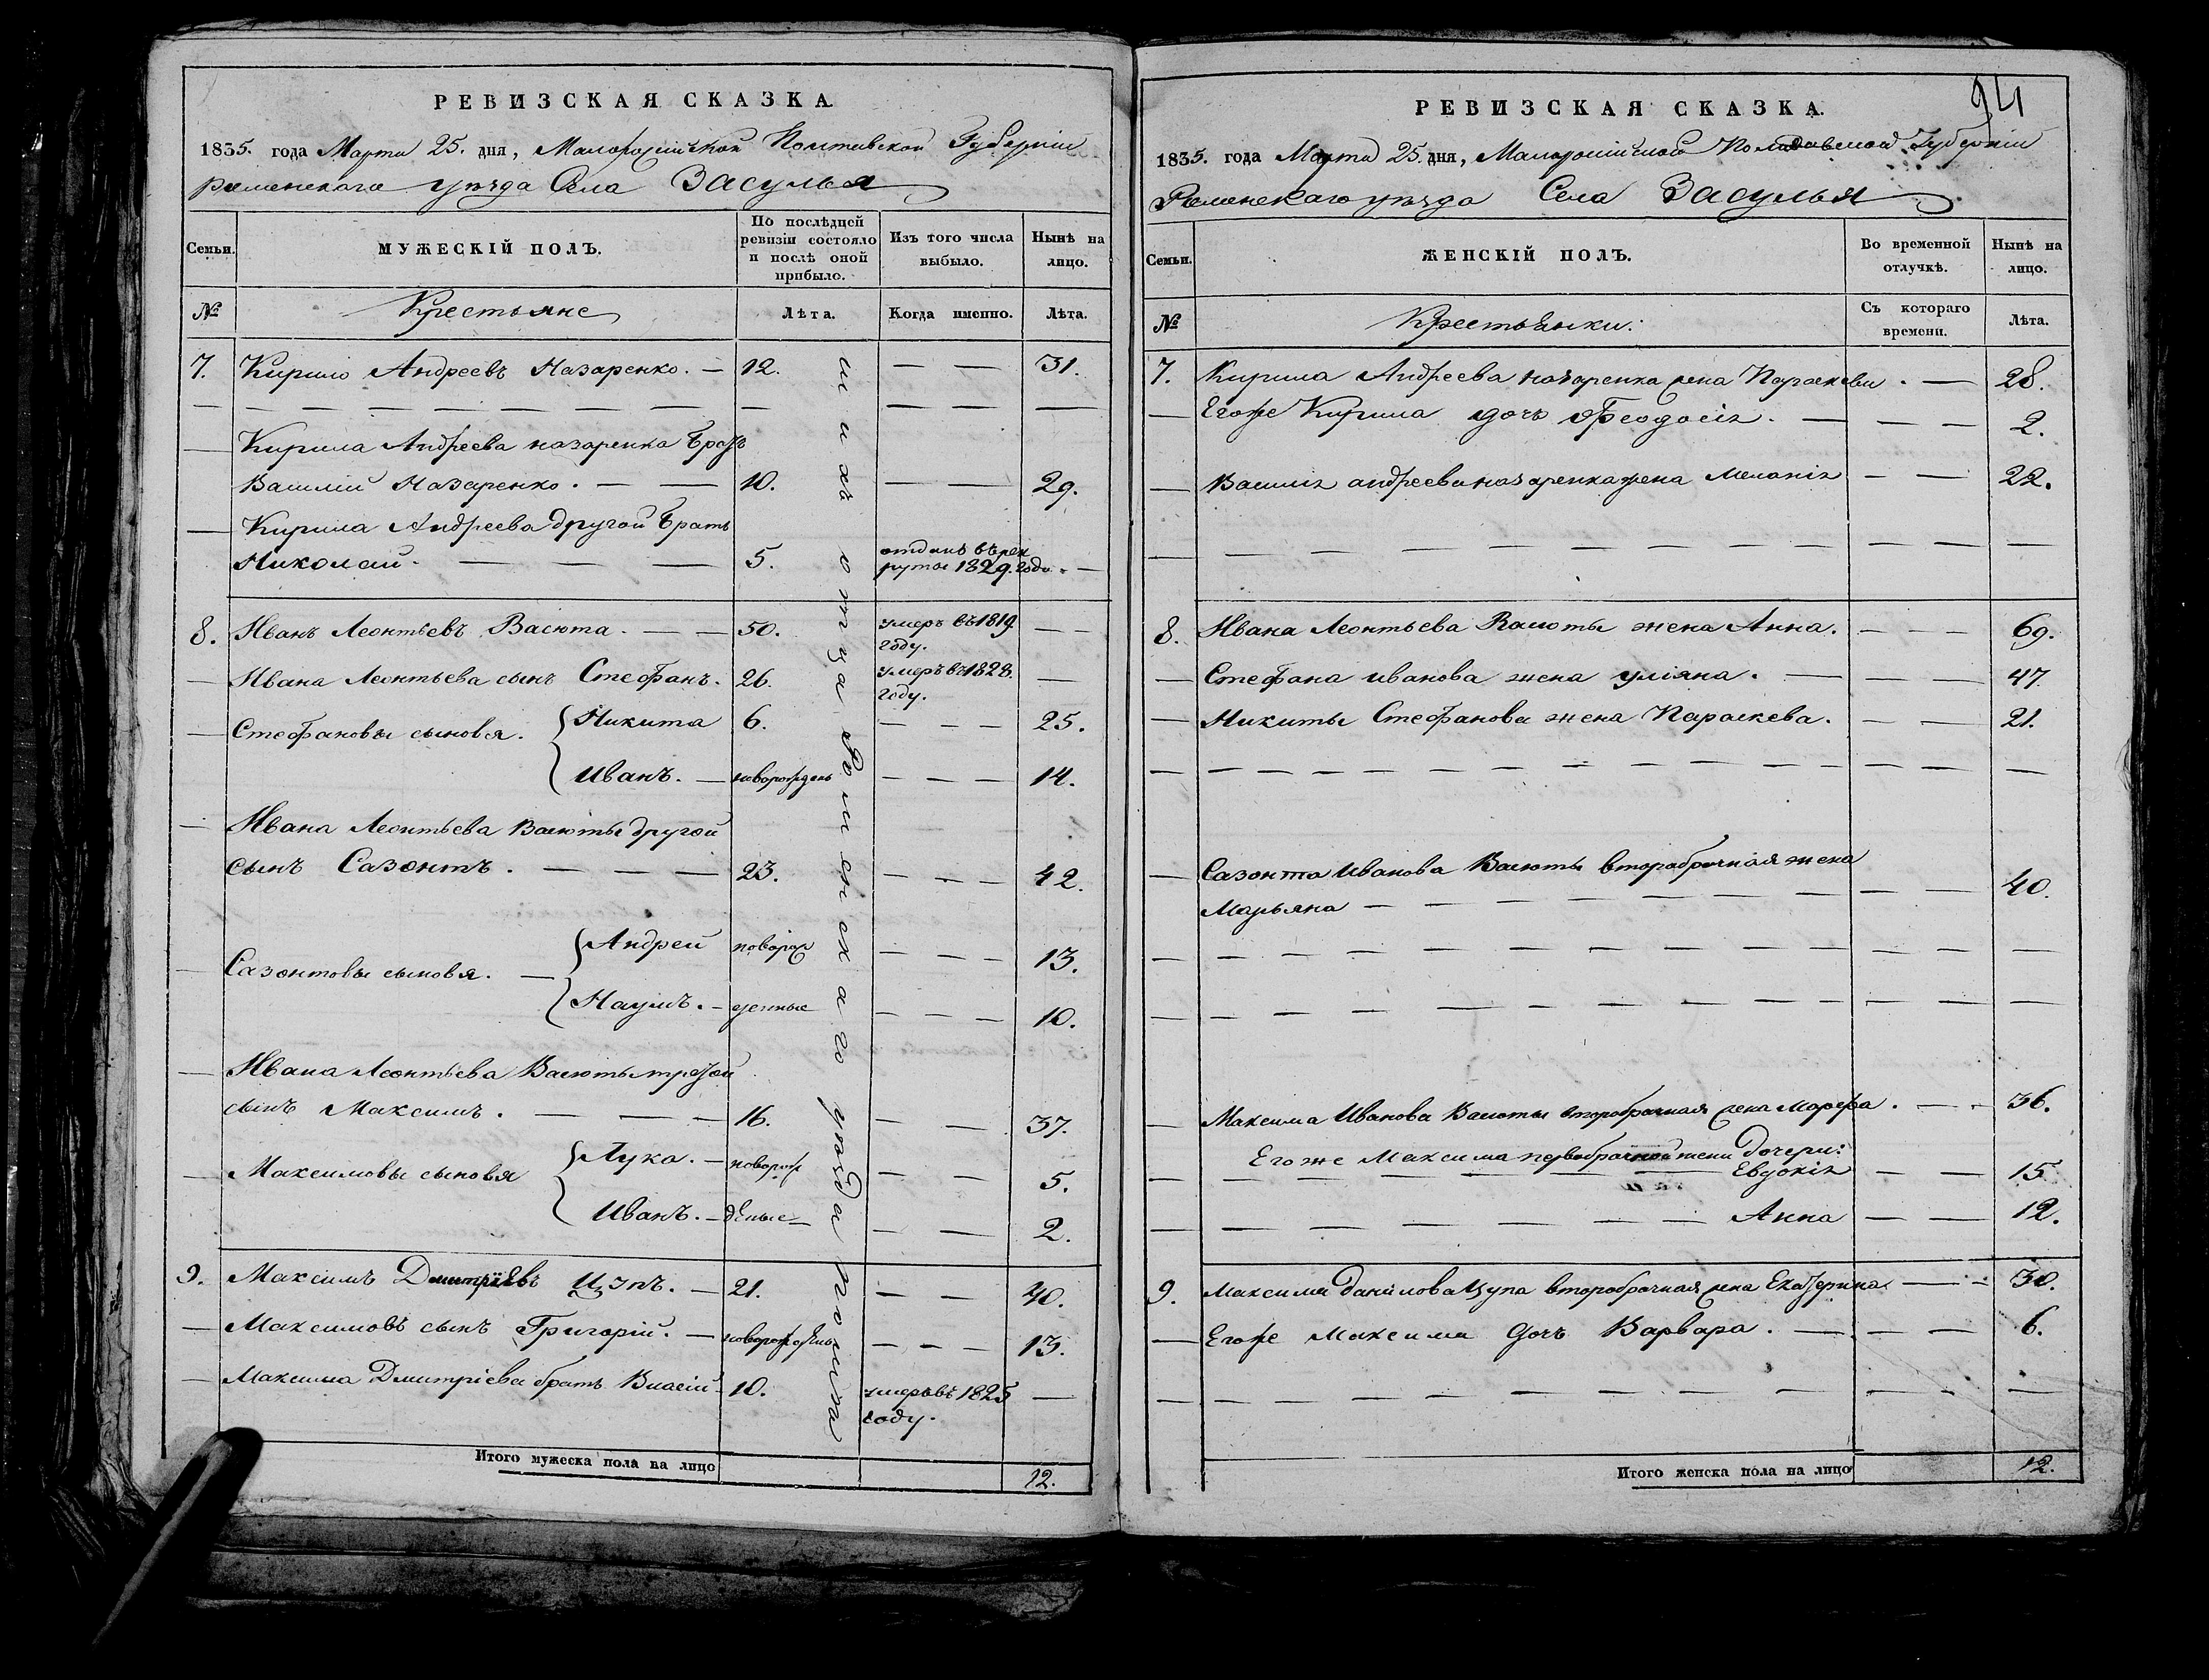 РЕВИЗСКАЯ СКАЗКА.
1835. года Марта 25. дня, Малороссійской Полтавской Губерніи
Роменского уѣзда Села Засулья
Семьи.
МУЖЕСКІЙ ПОЛЪ.
По послѣдней ревизіи состояло и послѣ оной прибыло.
Изъ того числа выбыло.
Нынѣ на лицо.
№
Крестьяне
Лѣта.
Когда именно.
Лѣта.
7. Кирило Андреевъ Назаренко. 12. 31.
Кирила Андреева назаренка Братъ
Василій Назаренко. 10. 29.
Кирила Андреева другой Братъ
Николай. 5. отданъ въ рек
руты 1829. году.
8. Иванъ Леонтьевъ Васюта. 50. умеръ въ 1819
году.
Ивана Леонтьева сынъ Стефанъ. 26. умеръ въ 1828.
году.
Стефановы сыновья. Никита 6. 25.
Иванъ. новорожденъ 14.
Ивана Леонтьева Васюты другой
сынъ Сазонтъ. 23. 42.
Сазонтовы сыновья. Андрей новорож 13.
Наумъ. денные 10.
Ивана Леонтьева Васюты третой
сынъ Максимъ. 16. 37.
Максимовы сыновья Лука. новорож 5.
Иванъ. деные 2.
9. Максимъ Дмитріевъ Цупъ. 21. 40.
Максимовъ сынъ Григорій. новорожденъ 13.
Максима Дмитріева братъ Власій 10. умеръ въ 1825
году.
Итого мужеска пола на лицо 12.
отца Роменскаго уѣзда
94
РЕВИЗСКАЯ СКАЗКА.
1835. года Марта 25. дня, Малоросійской Полтавской Губерніи
Роменскаго уѣзда Села Засулья
Семьи.
ЖЕНСКІЙ ПОЛЪ.
Во временной отлучкѣ.
Нынѣ на лицо.
№
Крестьянки:
Съ котораго времени.
Лѣта.
7. Кирила Андреева назаренка жена Параскева. 28.
Егоже Кирила дочь Феодосія. 2.
Василія андреева назаренка жена Меланія 22.
8. Ивана Леонтьева Васюты жена Анна. 69.
Стефана иванова жена уліяна. 47.
Никиты Стефанова жена Параскева. 21.
Сазонта Иванова Васюты второбрачная жена
Марьяна 40.
Максима Иванова Васюты второбрачная жена Марфа. 36.
Егоже Максима первобрачной жени Дочери:
Евдокія 15.
Анна 12.
9. Максима Данилова Цупа второбрачная жена Екатерина. 30.
Егоже Максима дочь Варвара. 6.
Итого женска пола на лицо 12.